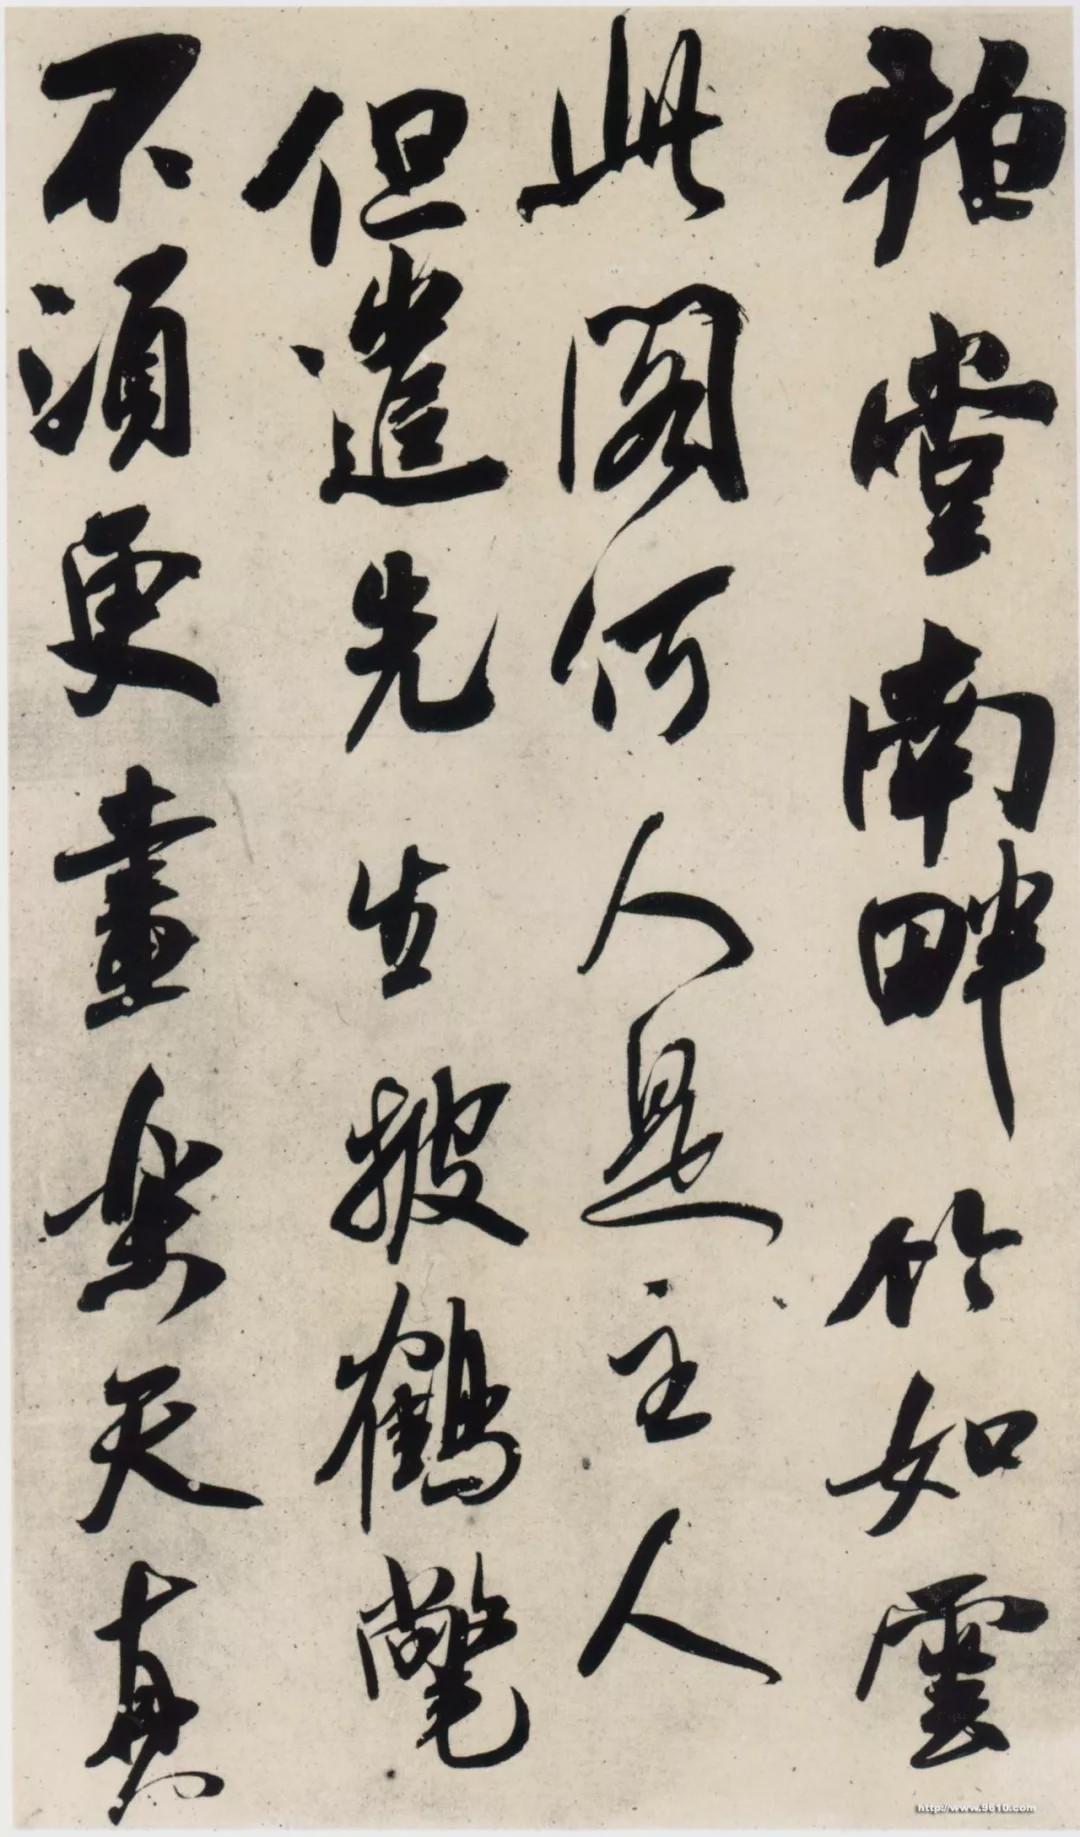 柏堂南畔竹如雲
此閣何人是主人
但遣先生披鶴氅
不須更畫樂天真
http://www.9610.com